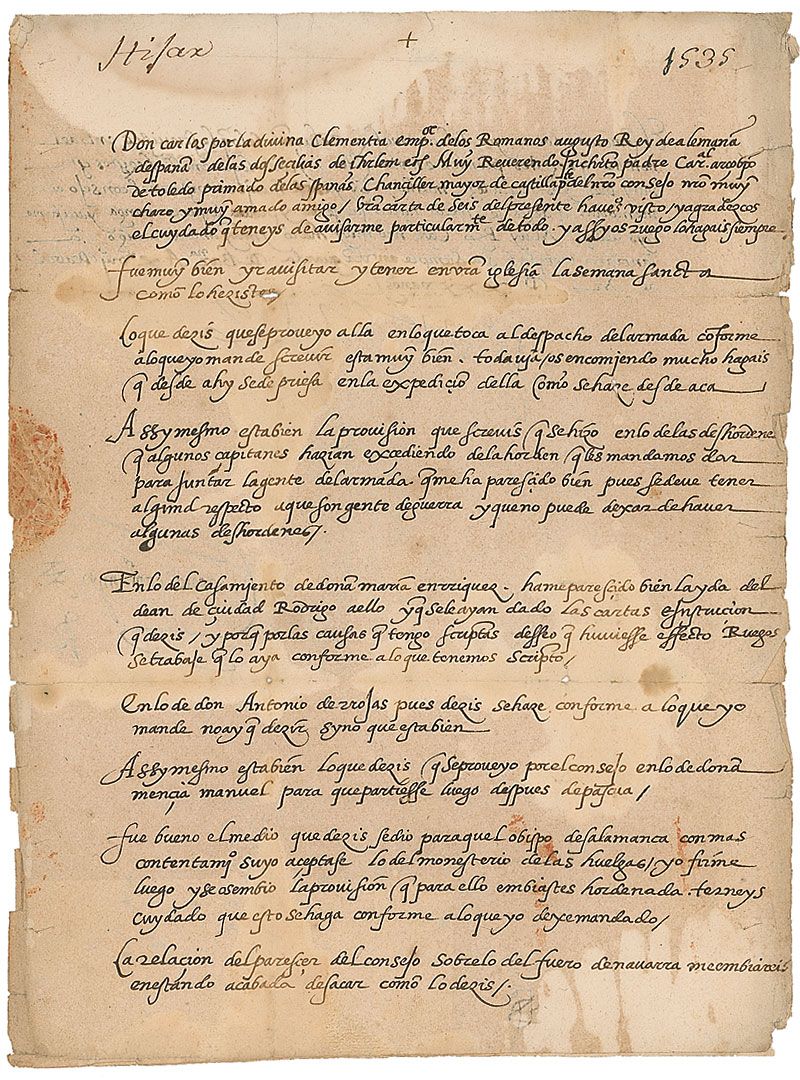 Hijar + 1535
Don carlos por la divina Clementia empor de los Romanos augusto Rey de alemana
despana de las dos secilias de ihrlem etc Muy Reverendo Inchrito padre Caral arcobpo
de toledo primado de las spanas Chanciller mayor de castilla pte del nro consejo nro muy
charo y muy amado amigo / vra carta de seis del presente havemos visto / y agradezcos
el cuydado q teneys de avisarme particularmte de todo. y assy os ruego lo hagais siempre
fue muy bien yr a visitar y tener en vra iglesia la semana sancta
como lo hezistes /
Lo que dezis que se proveyo alla en lo que toca al despacho del armada coforme
a lo que yo mande screvir esta muy bien. todavia / os encomiendo mucho hagais
q desde ahy se de priesa en la expedicio della Como se haze desde aca
Assy mesmo esta bien la provision que screvis q se hizo en lo de las deshordenes
q algunos capitanes hazian excediendo de la horden q les mandamos dar
para Juntar la gente del armada. q me ha parescido bien pues se deve tener
algund respecto a que son gente de guerra y que no puede dexar de haver
algunas deshordenes /.
En lo del Casamiento de dona maria enrriquez. hame parescido bien la yda del
dean de ciudad Rodrigo a ello y q se le ayan dado las cartas e instrucion
q dezis, / y porq por las causas q tengo scriptas desseo q huviesse effecto Ruegos
se trabaje q lo aya conforme a lo que tenemos scripto /
En lo de don Antonio de rrojas pues dezis se haze conforme a lo que yo
mande no ay q dezir syno que esta bien
Assy mesmo esta bien lo que dezis q se proveyo por el consejo en lo de dona
mencia manuel para que partiesse luego despues de pascua /
fue bueno el medio que dezis se dio para quel obispo de salamanca con mas
contentamio suyo aceptase lo del monesterio de las huelgas / yo firme
luego y se os embio la provision q para ello embiastes hordenada. terneys
Cuydado que esto se haga conforme a lo que yo dexe mandado /
La relacion del parescer del consejo sobre lo del fuero de navarra me embiareis
en estando acabada de sacar como lo dezis /.